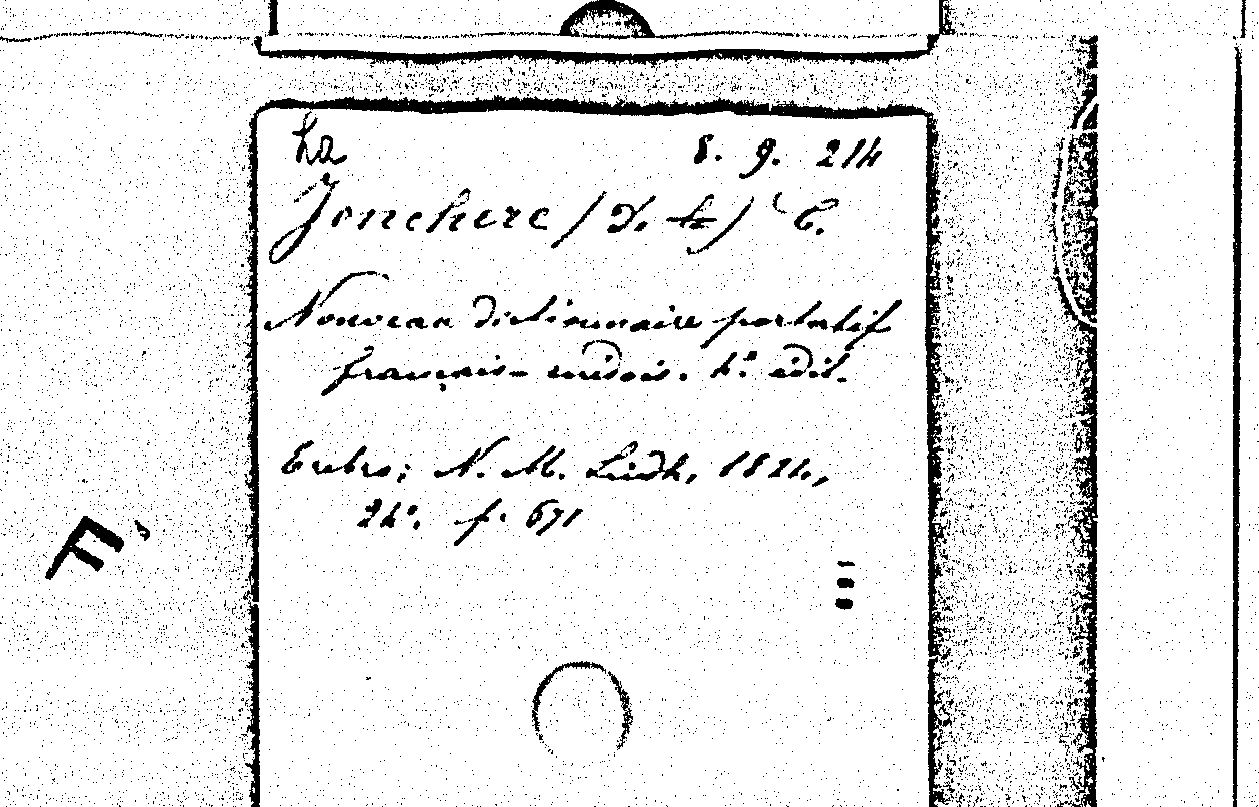 La 8. 9. 214
Jonchere / D. la) C.
Nouveau dictionnaire portatif
français-suédois. 4e. édit.
Örebro; N. M. Lindh, 1824,
24°. p. 671
F